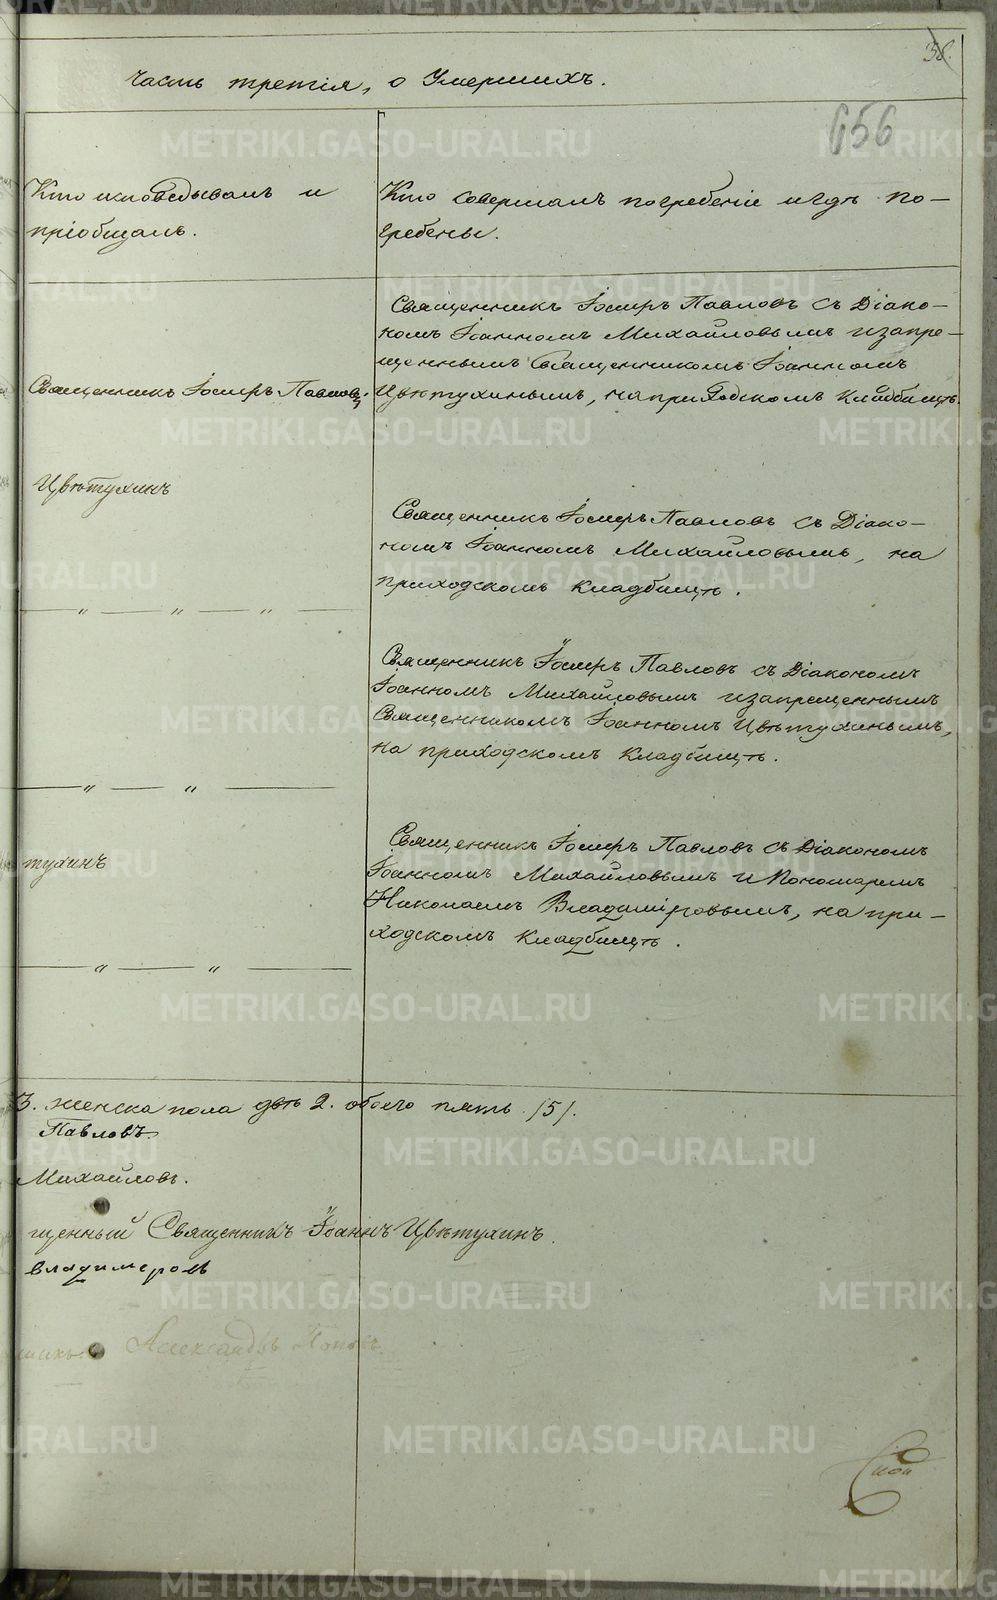 38.
Часть третія, о Умершихъ.
656
Кто исповѣдывалъ и
пріобщалъ.
Кто совершалъ погребеніе и гдѣ по-
гребены.
Священникъ Іосифъ Павловъ съ Діако-
номъ Іоанномъ Михайловымъ и запре-
щеннымъ Священникомъ Іоанномъ
Цвѣтухинымъ, на приходскомъ кладбищѣ.
Священникъ Іосифъ Павловъ.
Цвѣтухинъ
Священникъ Іосифъ Павловъ съ Діако-
номъ Іоанномъ Михайловымъ, на
приходскомъ кладбищѣ.
— " — " — " —
Священникъ Іосифъ Павловъ съ Діакономъ
Іоанномъ Михайловымъ и запрещеннымъ
Священникомъ Іоанномъ Цвѣтухинымъ,
на приходскомъ кладбищѣ.
— " — " —
Священникъ Іосифъ Павловъ съ Діакономъ
Іоанномъ Михайловымъ и Пономаремъ
Николаемъ Владиміровымъ, на при-
ходскомъ кладбищѣ.
тухинъ
— " — " —
3. женска пола двѣ 2. обоего пять /5/.
Павловъ
Михайловъ.
щенный Священникъ Іоаннъ Цвѣтухинъ.
Владимеровъ
Александръ Поповъ
METRIKI.GASO-URAL.RU